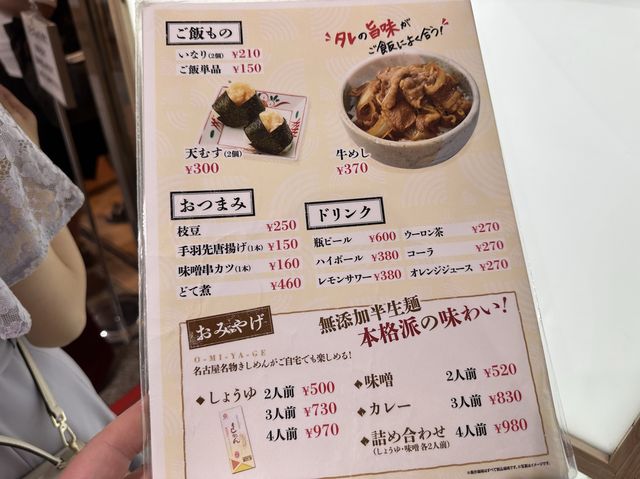 ご飯もの
いなり(2個) ¥210
ご飯単品 ¥150
タレの旨味が
ご飯によく合う!
天むす(2個)
¥300
牛めし
¥370
おつまみ
枝豆 ¥250
手羽先唐揚げ(1本) ¥150
味噌串カツ(1本) ¥160
どて煮 ¥460
ドリンク
瓶ビール ¥600
ハイボール ¥380
レモンサワー ¥380
ウーロン茶 ¥270
コーラ ¥270
オレンジジュース ¥270
おみやげ
O-MI-YA-GE
無添加半生麺
本格派の味わい!
名古屋名物きしめんがご自宅でも楽しめる!
◆しょうゆ 2人前 ¥500
3人前 ¥730
4人前 ¥970
きしめん
◆味噌 2人前 ¥520
◆カレー 3人前 ¥830
◆詰め合わせ 4人前 ¥980
(しょうゆ・味噌 各2人前)
※表示価格はすべて税込価格です。※写真はイメージです。